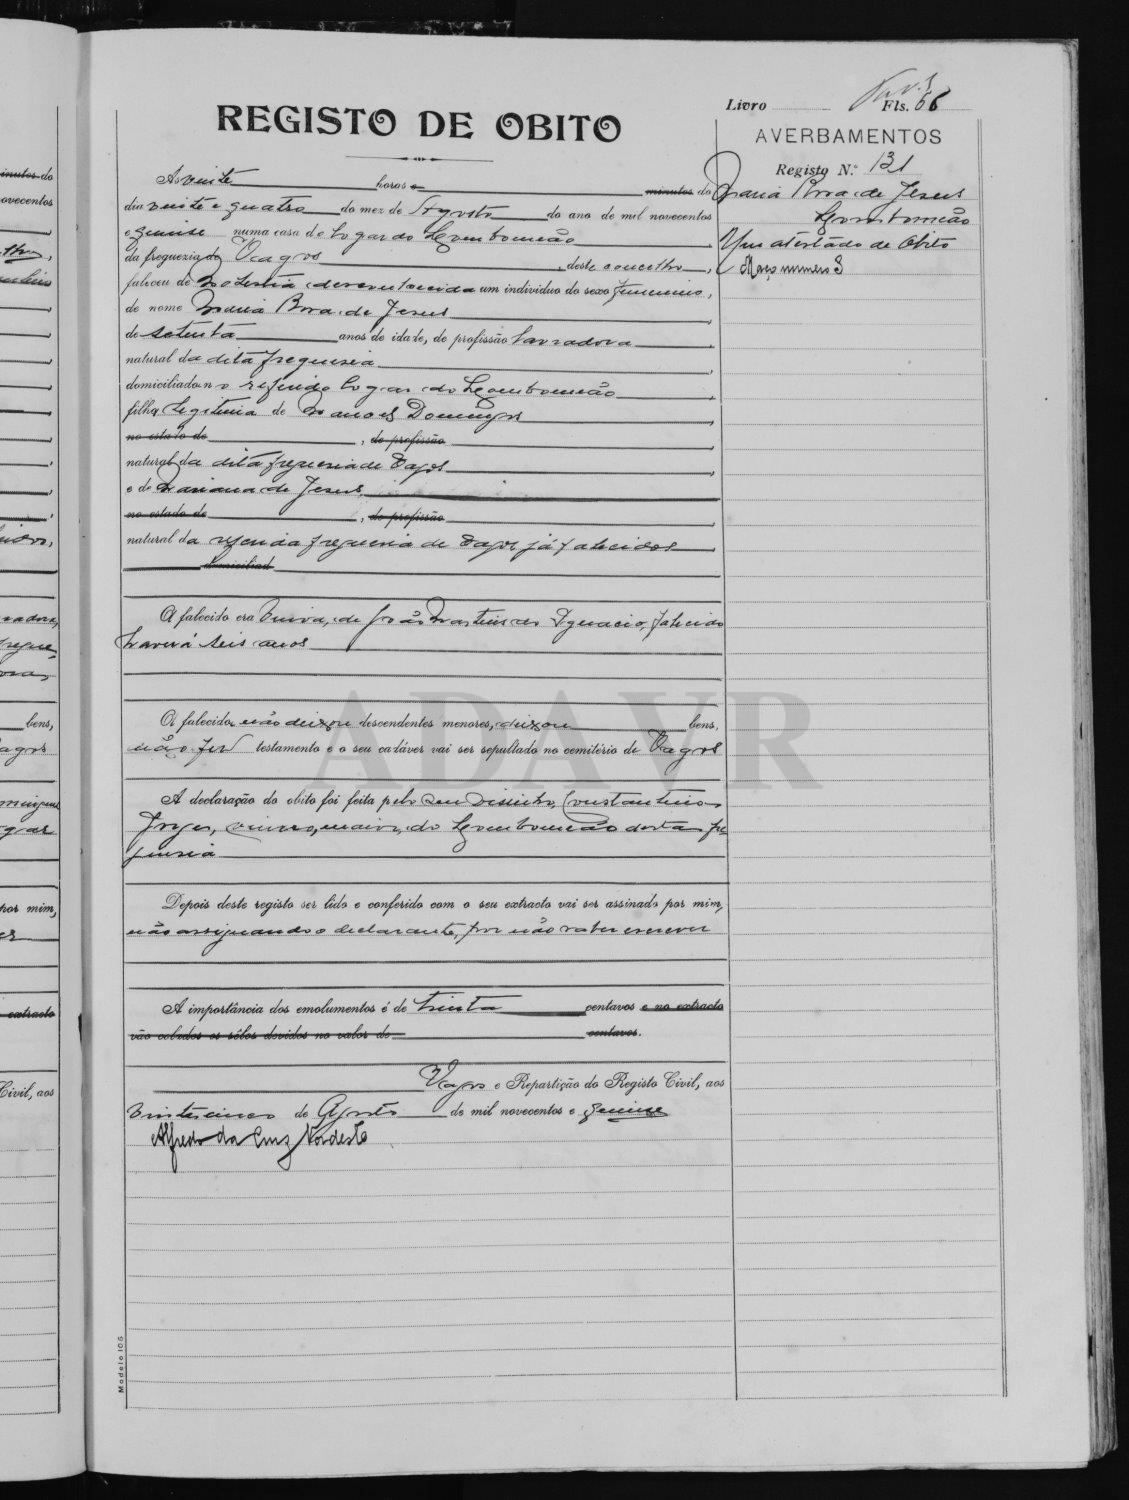 Livro Fls. 66
REGISTO DE OBITO
AVERBAMENTOS
Registo N.º 131
Maria Rosa de Jesus
Lombomeão
Um atestado de Obito
Março numero 8
As vinte horas e minutos do
dia vinte e quatro do mez de Agosto do ano de mil novecentos
e quinse numa casa do logar do Lombomeão
da freguezia de Vagos, deste concelho,
faleceu de molestia desconhecida um individuo do sexo femenino,
de nome Maria Rosa de Jesus
de setenta anos de idade, de profissão lavradora
natural da dita freguesia
domiciliada no referido logar do Lombomeão
filha legitima de Manoel Domingos
no estado de, de profissão
natural da dita freguesia de Vagos
e de Mariana de Jesus
no estado de, de profissão
natural da referida freguesia de Vagos já falecidos
domiciliad
A falecida era viuva, de João Martins Ignacio, falecido
haverá seis anos
A falecida não deixou descendentes menores, deixou bens,
não fez testamento e o seu cadáver vai ser sepultado no cemitério de Vagos
A declaração do obito foi feita pelo seu visinho, Constantino
Jorge, maior, do Lombomeão desta fre
guesia
Depois deste registo ser lido e conferido com o seu extracto vai ser assinado por mim,
não assignando o declarante, por não saber escrever
A importância dos emolumentos é de trinta centavos e no extracto
vão colados os sêlos devidos no valor de centavos.
Vagos e Repartição do Registo Civil, aos
vinte cinco de Agosto de mil novecentos e quinse
Alfredo da Cruz Nordeste
Modelo 105
ADAVR
minutos do
ovecentos
bens,
agos
gar
por mim,
extracto
Civil, aos